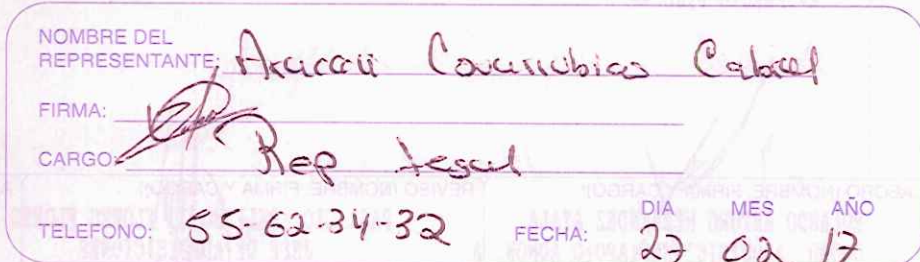 NOMBRE DEL
REPRESENTANTE: Araceli Covarrubias Cabral
FIRMA:
CARGO: Rep legal
DIA MES AÑO
TELEFONO: 55-62-34-32 FECHA: 27 02 17